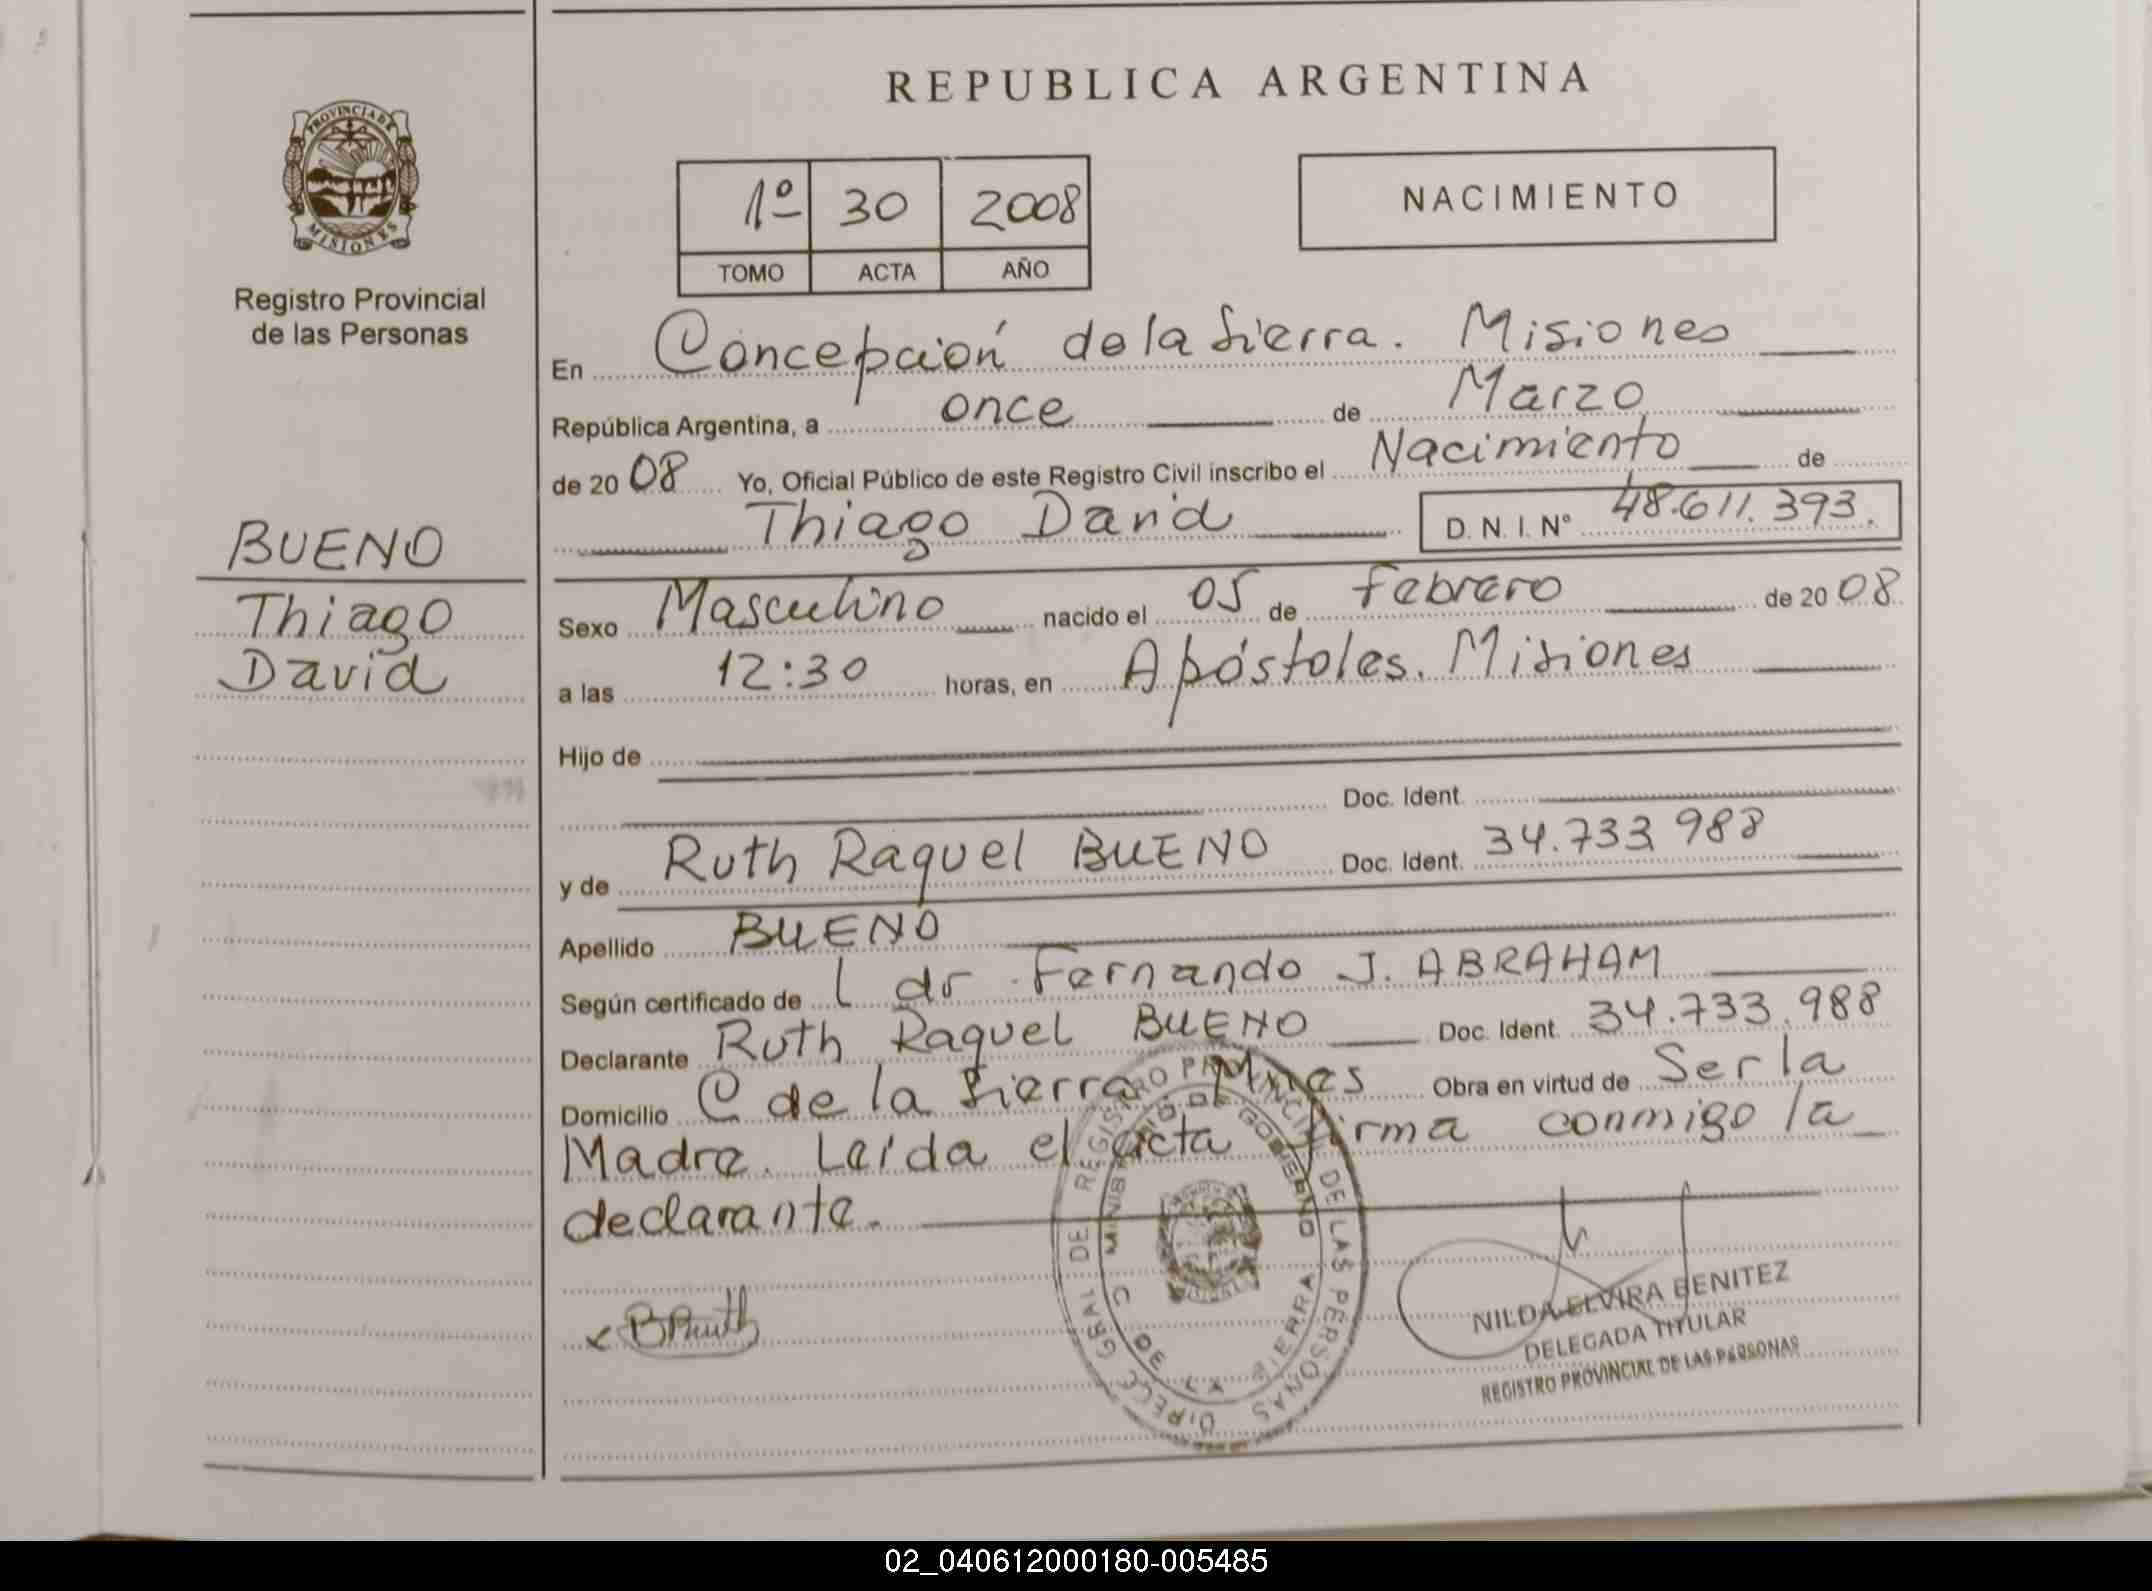 REPUBLICA ARGENTINA
PROVINCIA DE
MISIONES
Registro Provincial
de las Personas
1º 30 2008
TOMO ACTA AÑO
NACIMIENTO
En Concepción de la Sierra. Misiones
República Argentina, a once de Marzo
de 2008 Yo, Oficial Público de este Registro Civil inscribo el Nacimiento de
Thiago David D. N. I. Nº 48.611.393.
BUENO
Thiago
David
Sexo Masculino nacido el 05 de febrero de 2008
a las 12:30 horas, en Apóstoles. Misiones
Hijo de
Doc. Ident.
y de Ruth Raquel BUENO Doc. Ident. 34.733.988
Apellido BUENO
Según certificado de l dr Fernando J. ABRAHAM
Declarante Ruth Raquel BUENO Doc. Ident. 34.733.988
Domicilio C de la Sierra. Mnes Obra en virtud de Ser la
Madre. Leída el acta firma conmigo la
declarante.
DIRECC GRAL DE REGISTRO PROVINCIAL DE LAS PERSONAS
MINISTERIO DE GOBIERNO
C DE LA SIERRA
B Ruth
NILDA ELVIRA BENITEZ
DELEGADA TITULAR
REGISTRO PROVINCIAL DE LAS PERSONAS
02_040612000180-005485